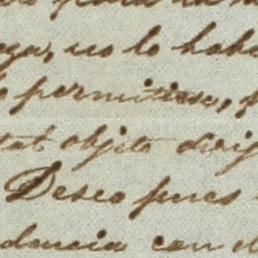 ega, no lo hab
permitiese,
tal objeto dirig
Deseo pues
dancia con el